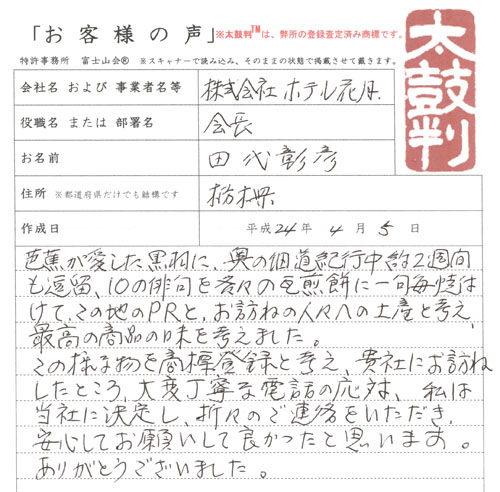 「お客様の声」※太鼓判™は、弊所の登録査定済み商標です。
特許事務所 富士山会® ※スキャナーで読み込み、そのままの状態で掲載させて戴きます。
太鼓判
会社名 および 事業者名等 株式会社 ホテル花月
役職名 または 部署名 会長
お名前 田代彰彦
住所 ※都道府県だけでも結構です 栃木県
作成日 平成24年 4月 5日
芭蕉が愛した黒羽に、奥の細道紀行中約2週間
も逗留、10の俳句を各々の瓦煎餅に一句毎焼つ
けて、この地のPRと、お訪ねの人々への土産と考え、
最高の商品の味を考えました。
この様な物を商標登録と考え、貴社にお訪ね
したところ、大変丁寧な電話の応対、私は
当社に決定し、折々のご連絡をいただき、
安心してお願いして良かったと思います。
ありがとうございました。